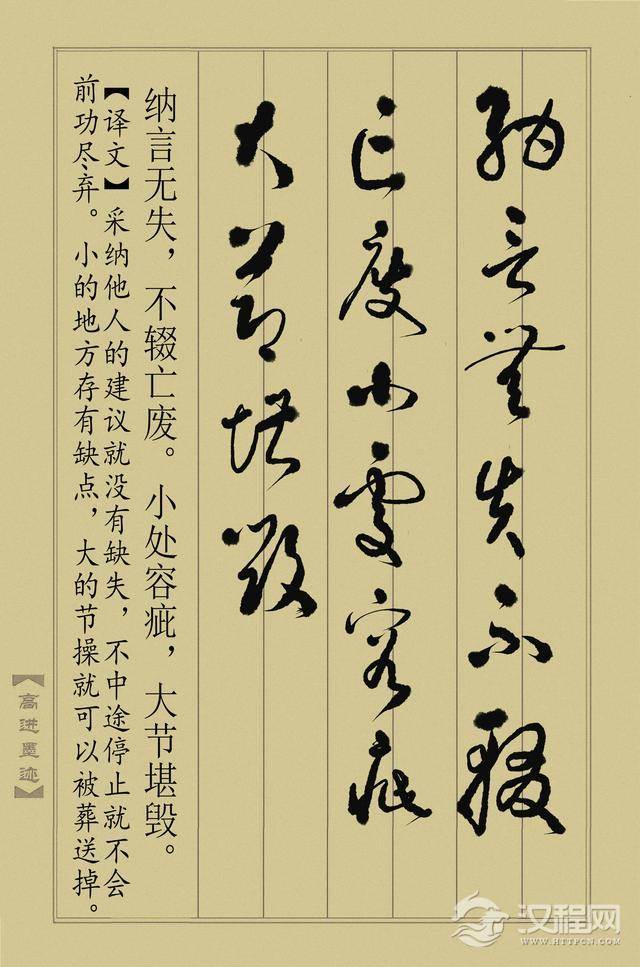 纳言無失不辍
亡废小處容疵
大节堪毁
纳言无失，不辍亡废。小处容疵，大节堪毁。
【译文】采纳他人的建议就没有缺失，不中途停止就不会
前功尽弃。小的地方存有缺点，大的节操就可以被葬送掉。
【高进墨迹】
汉程网
WWW.HTTPCN.COM